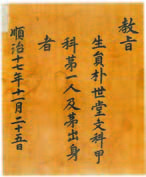 教旨
生員朴世堂文科甲
科苐一人及苐出身
者
順治十七年十一月二十五日